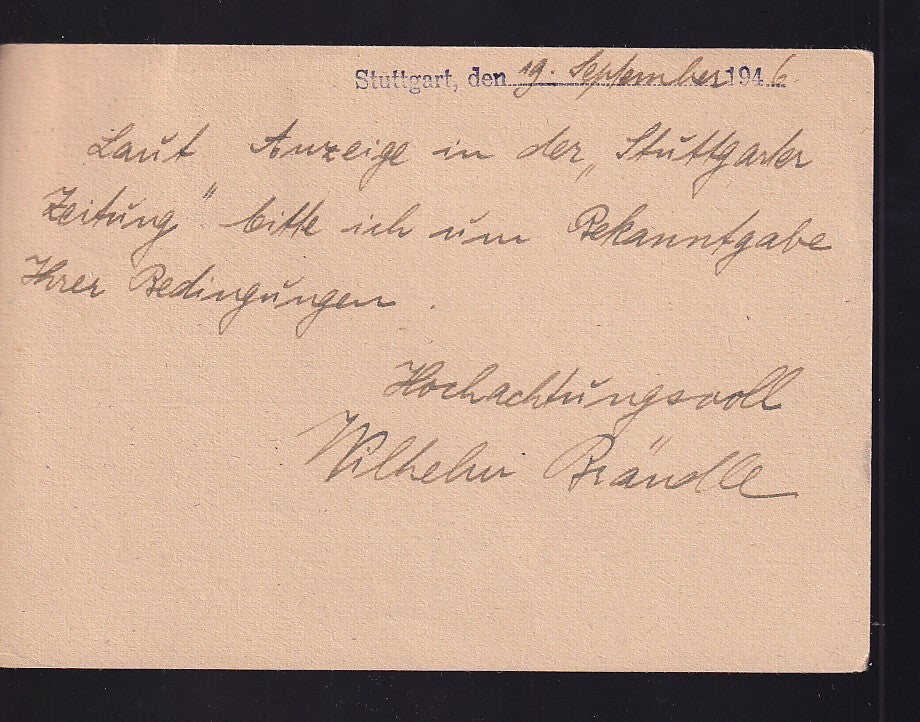 Stuttgart, den 19. September 1946.
Laut Anzeige in der „Stuttgarter
Zeitung" bitte ich um Bekanntgabe
Ihrer Bedingungen.
Hochachtungsvoll
Wilhelm Brändle